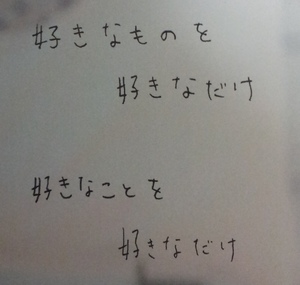 好きなものを
好きなだけ
好きなことを
好きなだけ